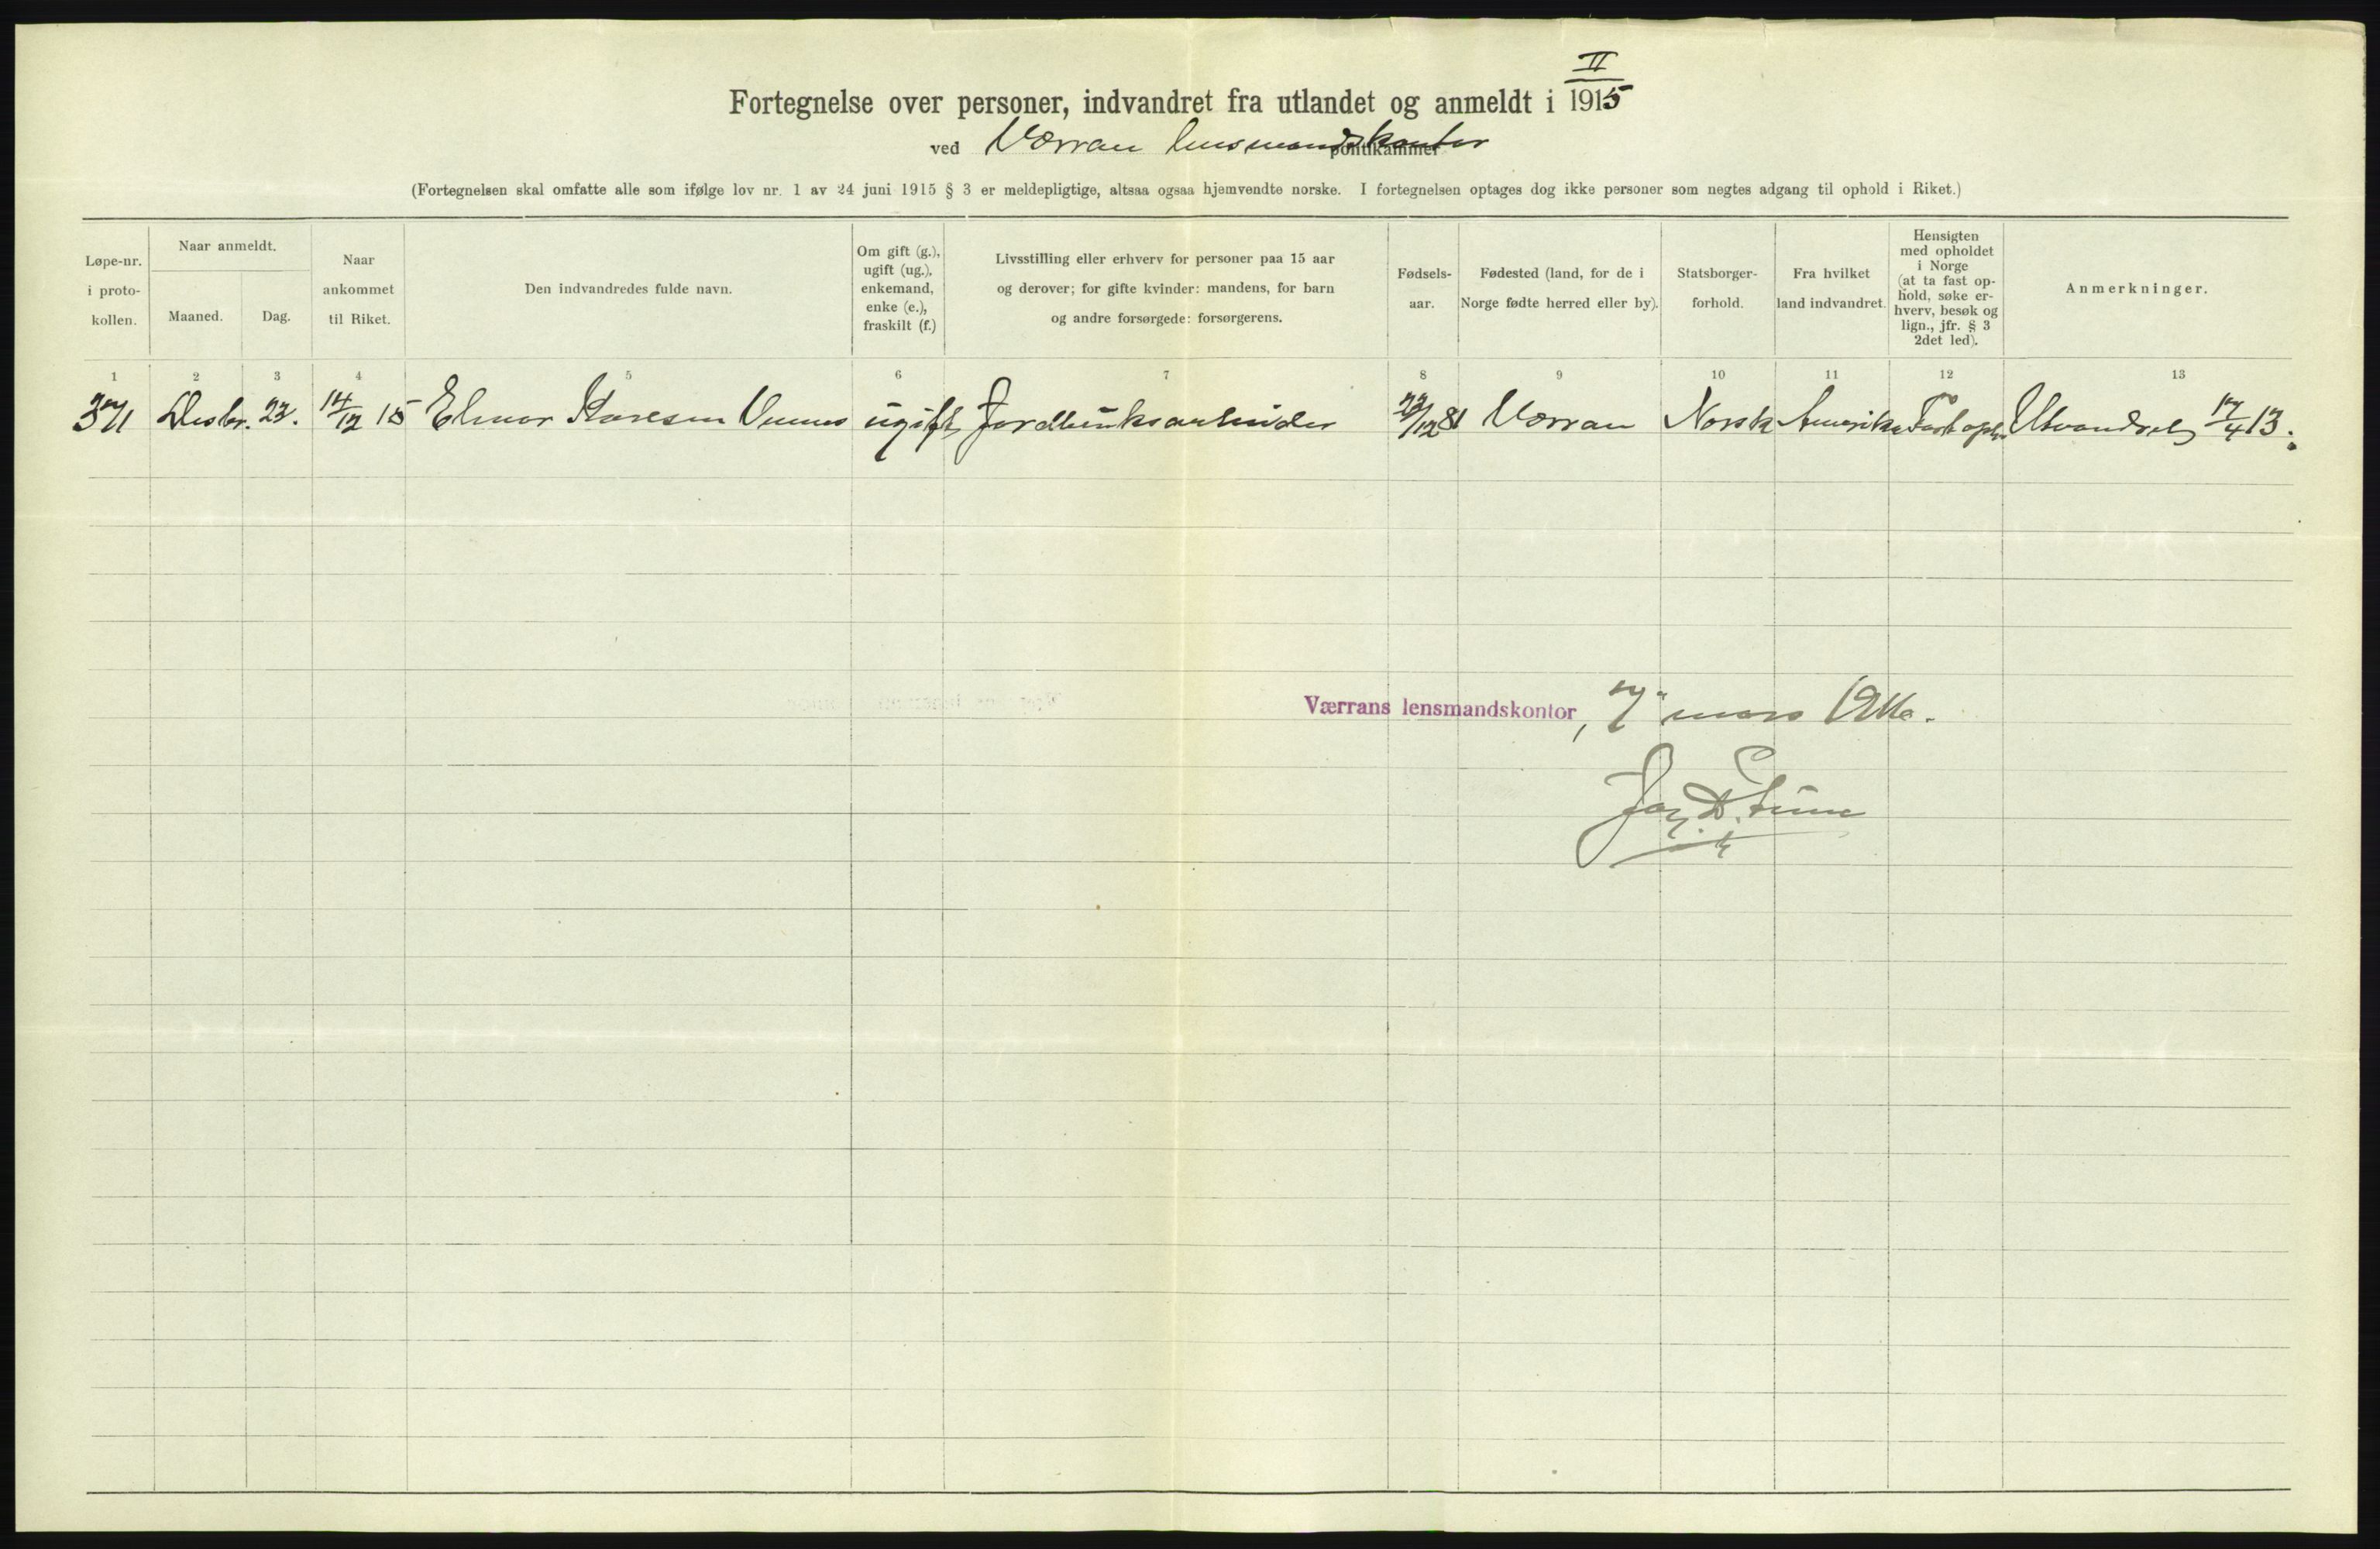 II
Fortegnelse over personer, indvandret fra utlandet og anmeldt i 1915
ved Værran lensmandskontor politikammer
(Fortegnelsen skal omfatte alle som ifølge lov nr. 1 av 24 juni 1915 § 3 er meldepligtige, altsaa ogsaa hjemvendte norske. I fortegnelsen optages dog ikke personer som negtes adgang til ophold i Riket.)
Løpe-nr.
i proto-
kollen.
Naar anmeldt.
Maaned.
Dag.
Naar
ankommet
til Riket.
Den indvandredes fulde navn.
Om gift (g.),
ugift (ug.),
enkemand,
enke (e.),
fraskilt (f.)
Livsstilling eller erhverv for personer paa 15 aar
og derover; for gifte kvinder: mandens, for barn
og andre forsørgede: forsørgerens.
Fødsels-
aar.
Fødested (land, for de i
Norge fødte herred eller by).
Statsborger-
forhold.
Fra hvilket
land indvandret.
Hensigten
med opholdet
i Norge
(at ta fast op-
hold, søke er-
hverv, besøk og
lign., jfr. § 3
2det led).
Anmerkninger.
1 2 3 4 5 6 7 8 9 10 11 12 13
Desbr. 22. 14/12 15 ugift Jordbruksarbeider 22/12 81 Værran Norsk Amerika Fast oph. Utvandret 17/4 13.
Værrans lensmandskontor, 7 mars 1916.